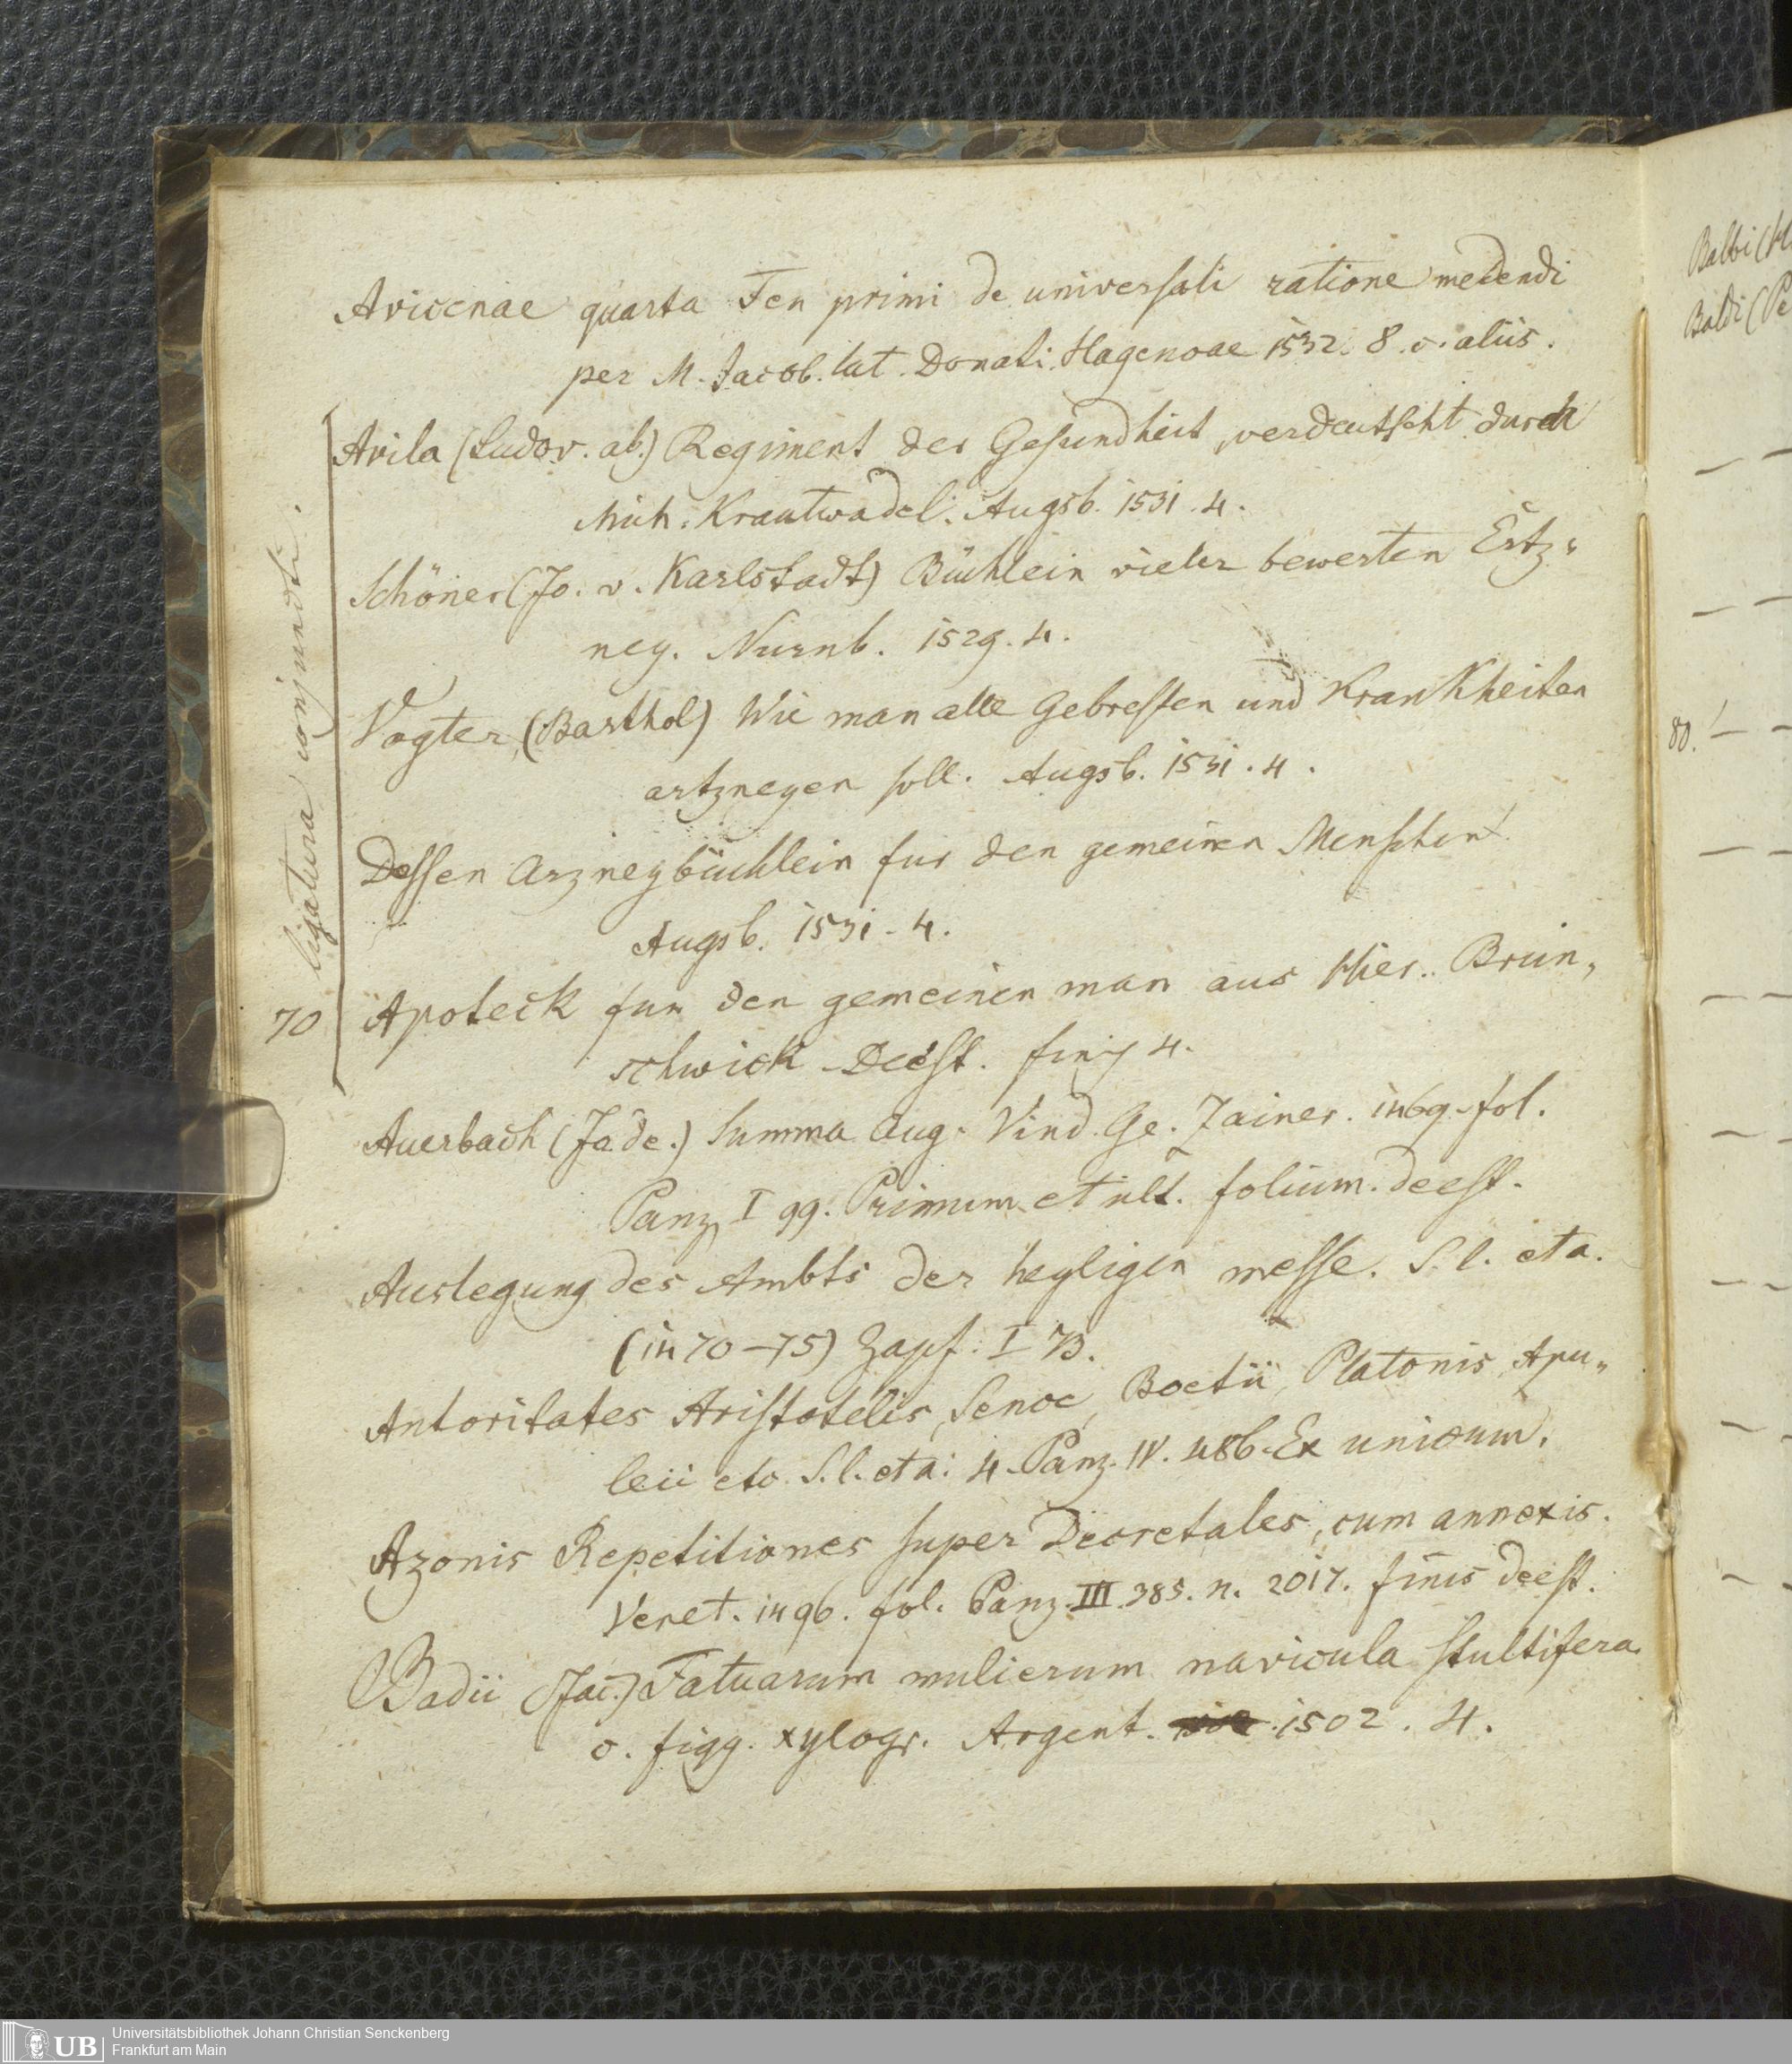 Avicenae quarta Fen primi de universali ratione medendi
per M. Jacob. lat. Donati. Hagenoae 1532. 8. c. aliis.
Avila (Ludov. ab.) Regiment der Gesundheit, verdeutscht durch
Mich. Krautwadel. Augsb. 1531. 4.
Schöner (Jo. v. Karlstadt) Büchlein vieler bewerten Ertz„
ney. Nurnb. 1529. 4.
Vogter (Barthol) Wie man alle Gebresten und Krankheiten
artzneyen soll. Augsb. 1531. 4.
Dessen Arzneybüchlein fur den gemeinen Menschen
Augsb. 1531. 4.
70 Apoteck fur den gemeinen man aus Hier. Brun„
schwick Deest. finis 4.
ligatura conjuncti.
Auerbach (Ja. de.) Summa Aug. Vind. Ge. Zainer. 1469. fol.
Panz I 99. Primum et ult. folium. deest.
Auslegung des Ambts der heyligen messe. S. l. et a.
(1470–75) Zapf. I 73.
Autoritates Aristotelis, Senec, Boetii, Platonis, Apu„
leii etc. S. l. et a. 4. Panz. IV. 486. Ex unicum.
Azonis Repetitiones super Decretales, cum annexis.
Venet. 1496. fol. Panz. III. 385. n. 2017. finis deest.
Badii (Jac.) Fatuarum mulierum navicula stultifera
c. figg. xylogr. Argent. 1502. 4.
Balbi (H
Baldi (Pe
80.
UB
Universitätsbibliothek Johann Christian Senckenberg
Frankfurt am Main